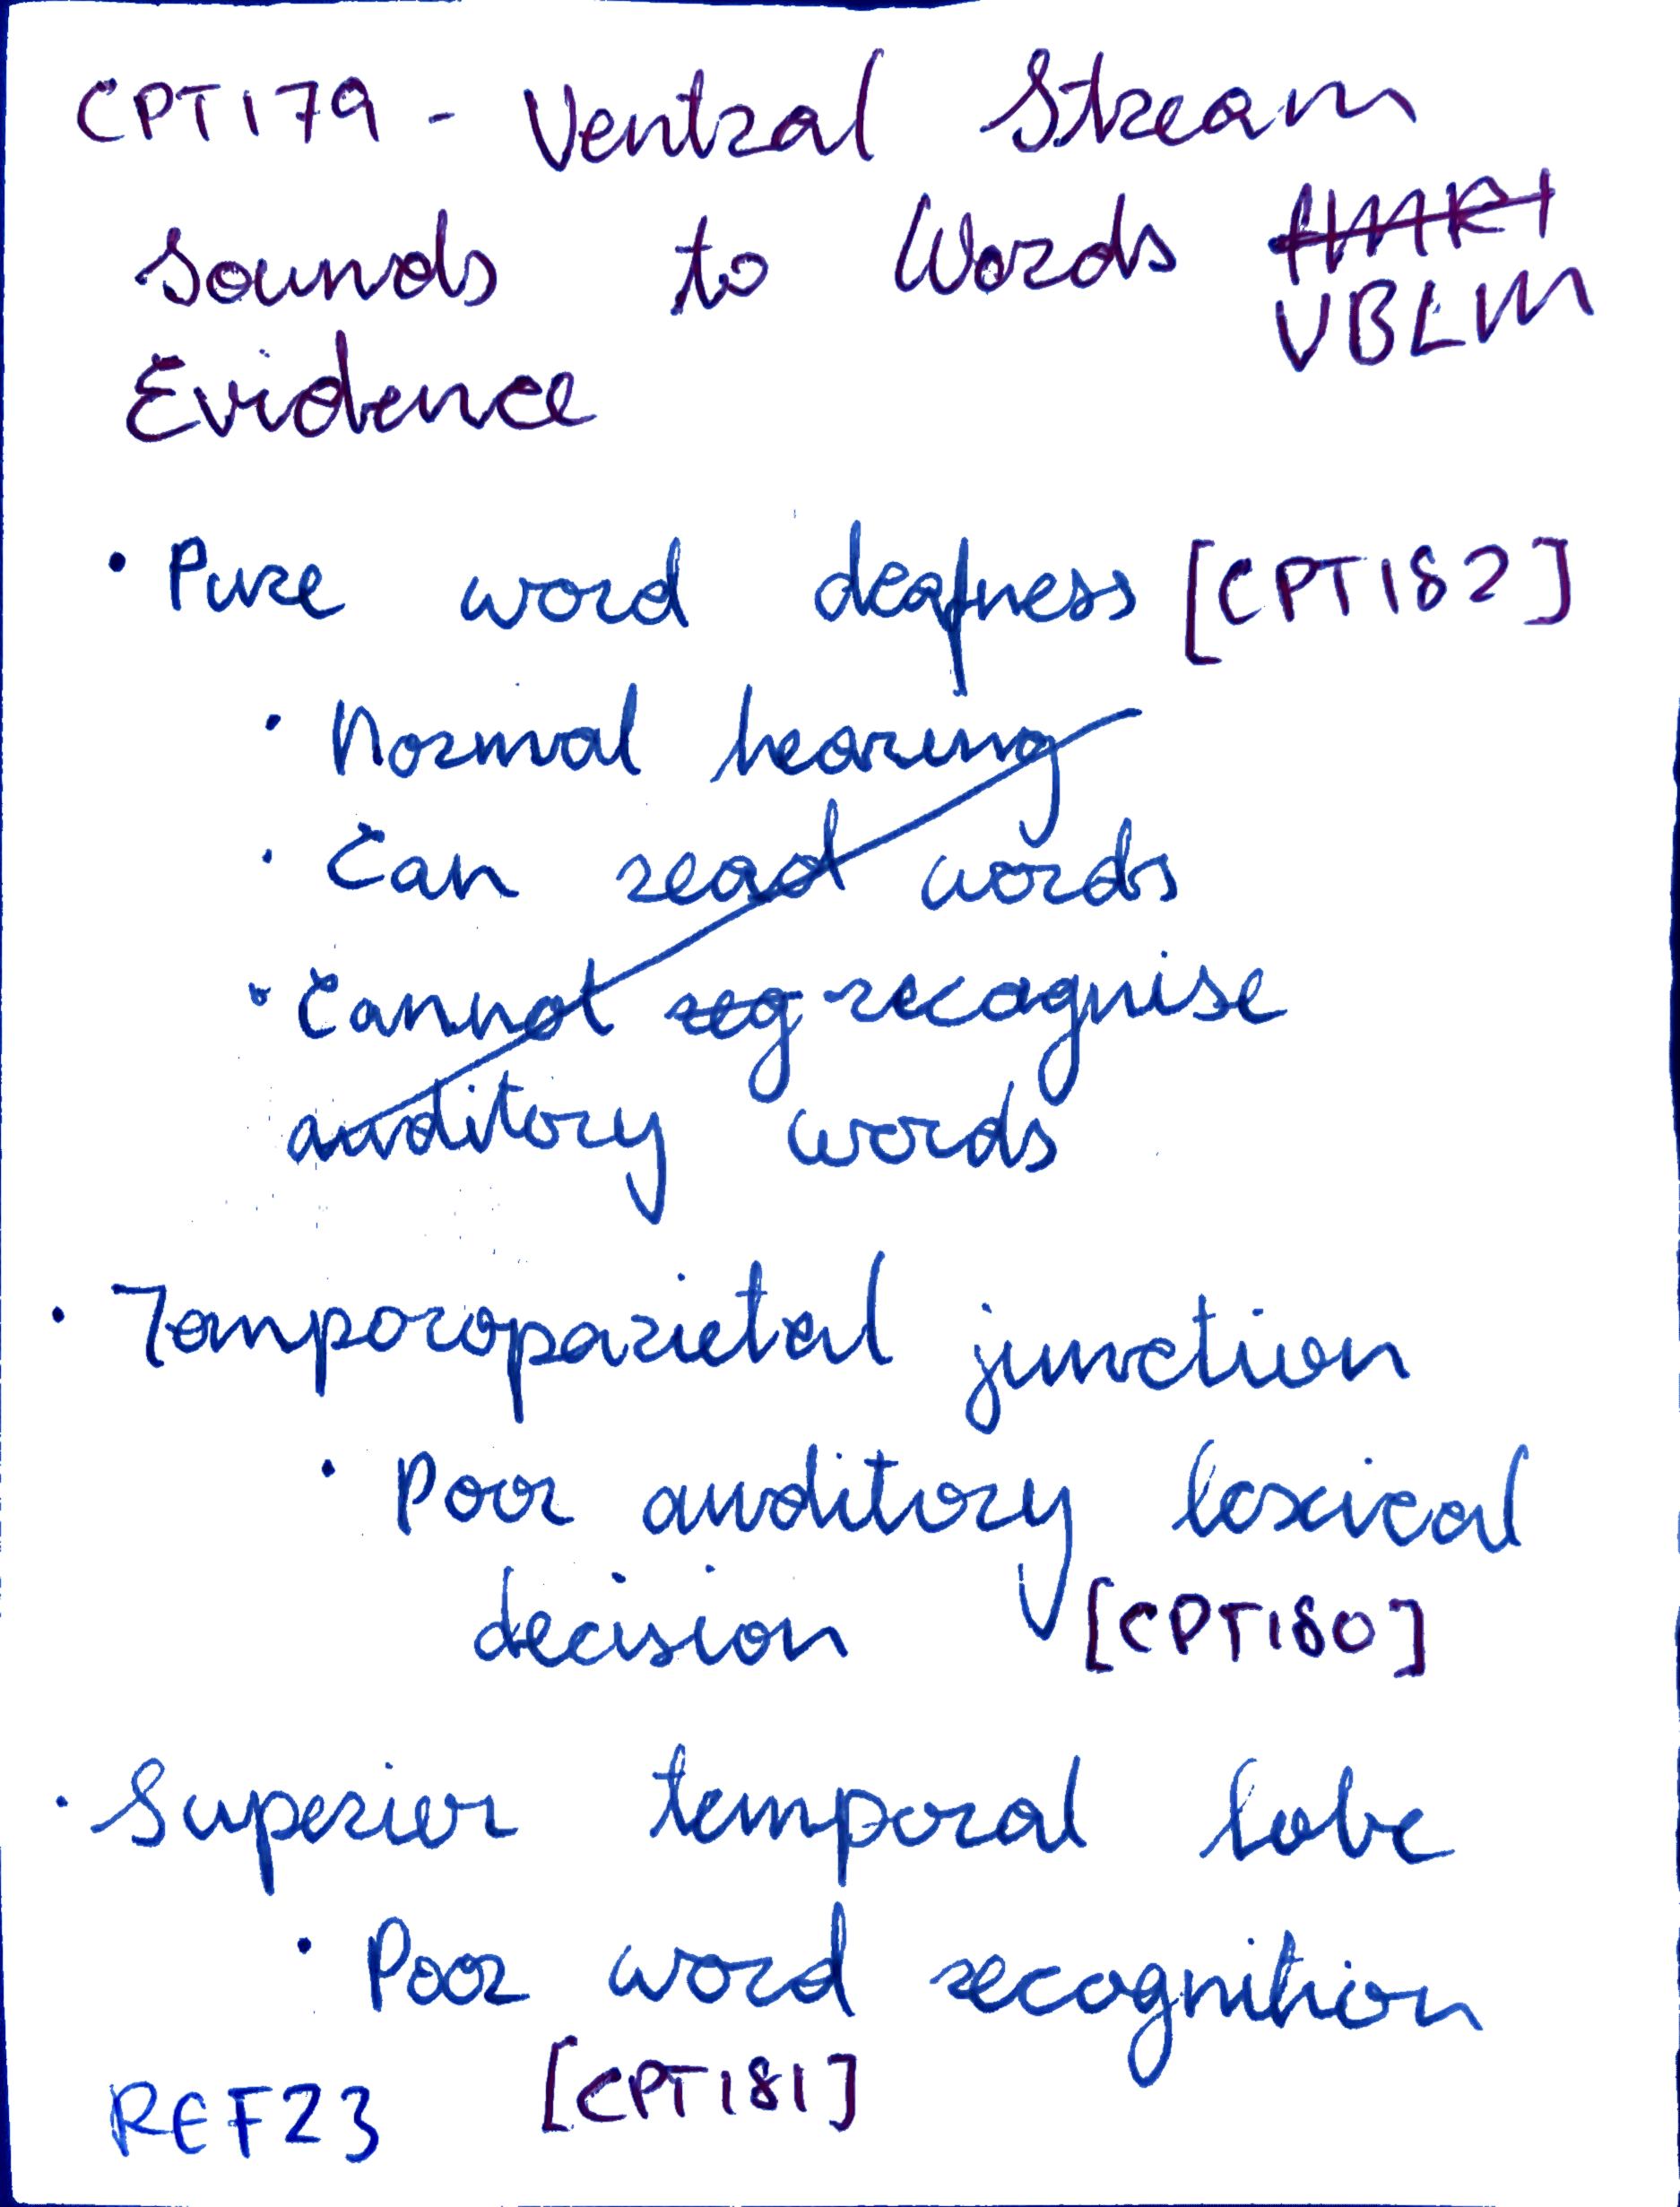 CPT179 - Ventral Stream
Sounds to Words fMRI
VBLM
Evidence
• Pure word deafness [CPT182]
• Normal hearing
• Can read words
• Cannot reg recognise
auditory words
• Temporoparietal junction
• Poor auditory lexical
decision [CPT180]
• Superior temporal lobe
• Poor word recognition
[CPT181]
REF23